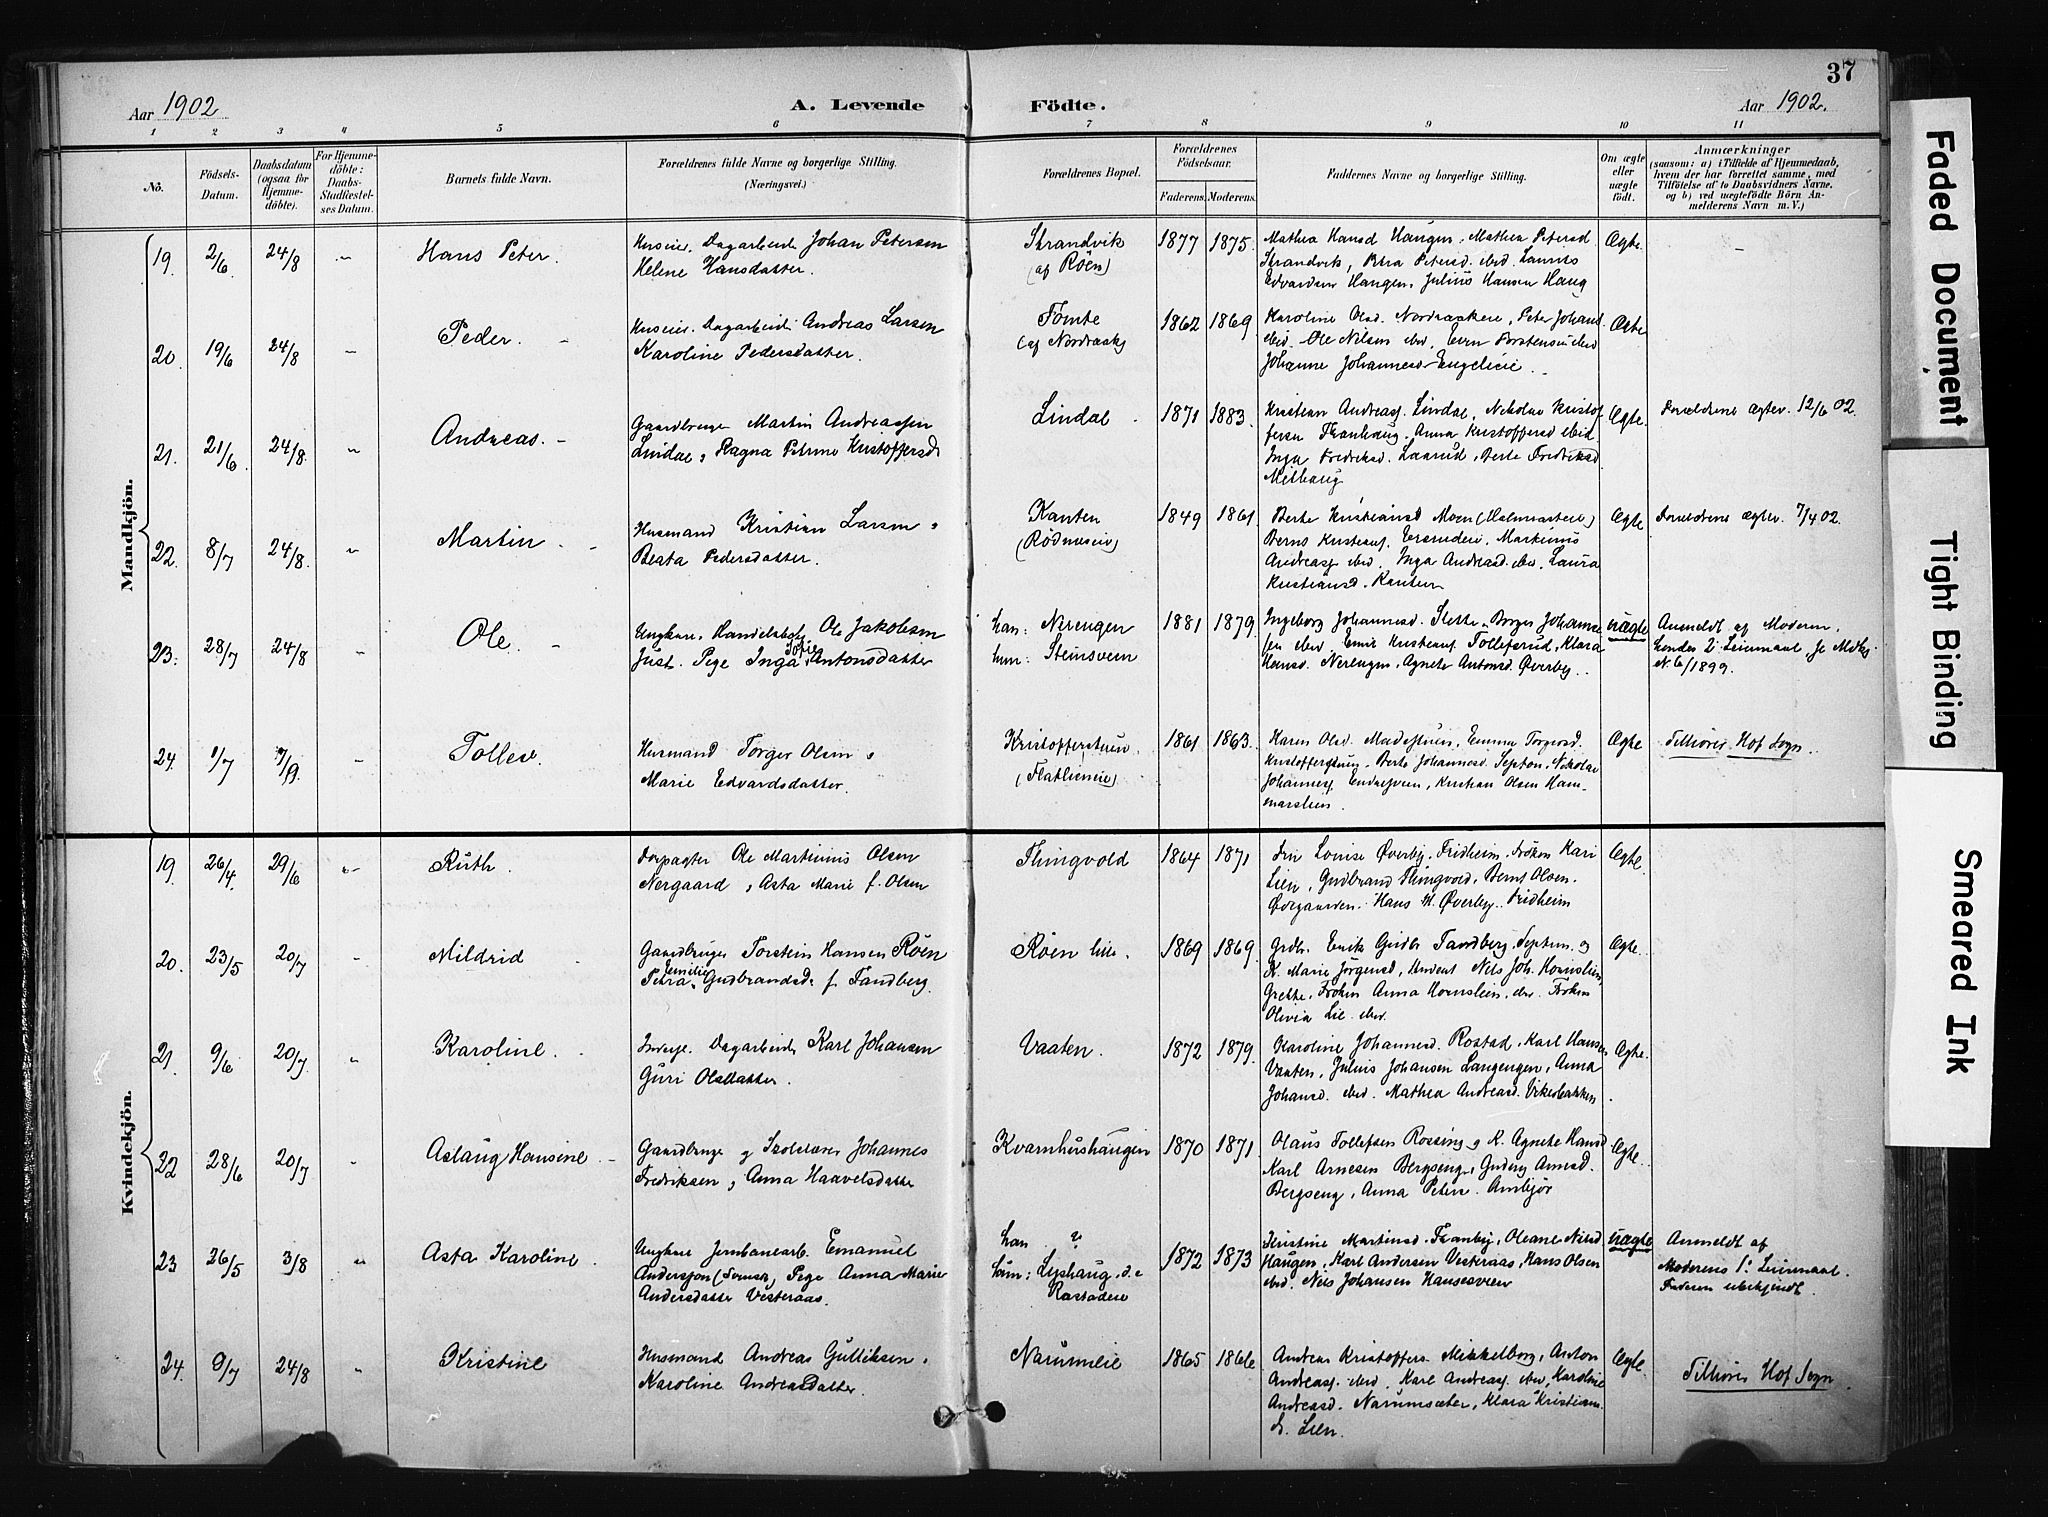 37
Aar 1902
A. Levende Födte.
Aar 1902.
1 2 3 4 5 6 7 8 9 10 11
No.
Födsels-Datum.
Daabsdatum (ogsaa for Hjemmedöbte).
For Hjemmedöbte: Daabs-Stadfæstelses Datum.
Barnets fulde Navn.
Forældrenes fulde Navne og borgerlige Stilling. (Næringsvei.)
Forældrenes Bopæl.
Forældrenes Födselsaar.
Faderens. Moderens.
Faddernes Navne og borgerlige Stilling.
Om ægte eller uægte födt.
Anmærkninger
(saasom: a) i Tilfælde af Hjemmedaab,
hvem der har forrettet samme, med
Tilföielse af to Daabsvidners Navne.
og b) ved uægtefödte Börn An-
melderens Navn m. V.)
Mandkjön.
19. 2/6 24/8 Hans Peter. Huseier. Dagarbeider Johan Petersen
Helene Hansdatter.
Strandvik
(af Röen)
1877 1875.
Mathea Hansd Haugen, Mathea Petersd
Strandvik, Petra Petersd. ibid. Laurits
Edvardsen Haugen, Julius Hansen Haug
Ægte.
20. 19/6 24/8 Peder. Huseier. Dagarbeider Andreas Larsen
Karoline Pedersdatter.
Tömte
1862 1869
Karoline Olsd. Peter Johans
ibid. Ole Nilsen ibid, Even Torstensen ibid
Johanne Johannesd Engelien.
Ægte
21. 21/6 24/8. Andreas. Gaardbruger Martin Andreassen
Lindal, Ragna Petrine Kristoffersd
Lindal.
1871 1883.
Kristian Andreass. Lindal, Nikolai Kristof
fersen Tranhaug. Anna Kristoffersd ibid.
Inga Fredriksd. Laarud, Berte Fredriksd
Melhaug
Ægte.
Forældrene Ægtev. 12/6 02.
22. 8/7 24/8. Martin. Husmand Kristian Larsen,
Beata Pedersdatter.
Kanten
1849 1861
Berte Kristiansd Moen
Bernt Kristians. Martinius
Andreass ibid, Inga Andreasd. ibid, Laura
Kristiansd. Kanten
Ægte
Forældrene Ægtev. 7/4 02.
23. 28/7 24/8 Ole. Ungkar. Handelsbetj Ole Jakobsen
Just. Pige Inga Sofie Antonsdatter
han: Nerengen
hun: Steinsveen
1881 1879.
Ingeborg Johannesd. Slette, Borger Johannes
sen ibid. Emil Kristians. Tollefsrud, Klara
Hansd. Nerengen, Agnete Antonsd. Øverby.
uægte
Anmeldt af Moderen,
hendes 2. Leiermaal,
N. 6/1899.
24. 1/7 7/9. Tollev. Husmand Torger Olsen,
Marie Edvardsdatter.
Kristofferstuen
1861 1863.
Karen Olsd. Emma Torgersd.
Kristofferstuen. Berte Johannesd. Septon. Nikolai
Johanness. Kristian Olsen Ham-
marstuen.
Ægte
Tilhörer Hof Sogn.
Kvindekjön.
19. 26/4. 29/6 Ruth. Forpagter Ole Martinius Olsen
Nergaard, Asta Marie f. Olsen
Thingvold
1864 1871
Fru Louise Øverby. Fridheim. Fröken Kari
Lien, Gudbrand Thingvold, Bernt Olsen.
Hans M. Øverby. Fridheim
Ægte.
20. 23/5 20/7 Mildrid Gaardbruger Torstein Hansen Röen
Petra Emilie Gudbrandsd. f. Tandberg.
Röen lille.
1869 1869.
Grdbr. Emik Gudbr. Tandberg. Septum. og
K. Marie Jörgensd, Student Nils Joh. Hornslien,
Grette. Fröken Anna Hornslein, ibid. Fröken
Olivia Lie. ibid.
Ægte.
21. 9/6 20/7. Karoline. Dagarbeider Karl Johansen
Guri Olsdatter.
Vaaten.
1872 1879.
Karoline Johannesd. Rostad. Karl Hansen
Vaaten, Julius Johansen Langengen, Anna
Johansd. ibid. Mathea Andreasd. Vikesbakken
Ægte.
22 28/6 20/7 Aslaug Hansine. Gaardbruger og Skolelærer Johannes
Fredriksen, Anna Haavelsdatter
Kvarnhushaugen
1870 1871.
Olaus Tollefsen Rossing og K. Agnete Hansd
Karl Arnesen Bergseng, Gudny Arnesd.
Bergseng, Anna Petersen. Arnbjör
Ægte.
23 26/5 3/8 Asta Karoline. Ungkar Jernbanearb. Emanuel
Andersson (Svensk), Pige Anna Marie
Andersdatter Vesteraas.
han ?
hun:
1872 1873
Kristine Martinsd. Tranby, Oleane Nilsd
Haugen, Karl Andersen Vesteraas, Hans Olsen
ibid. Nils Johansen Hansesveen
uægte
Anmeldt af
Moderens 1. Leiermaal.
Faderen ubekjendt.
24. 9/7 24/8 Kristine Husmand Andreas Gulliksen.
Karoline Andreasdatter.
Narumeie
1865 1866
Andreas Kristoffers. Mikkelborg, Anton
Andreass. ibid. Karl Andreass ibid, Karoline
Andreasd. Narumsæter, Klara Kristians
d. Lien.
Ægte.
Tilhörer Hof Sogn.
Faded Document
Tight Binding
Smeared Ink